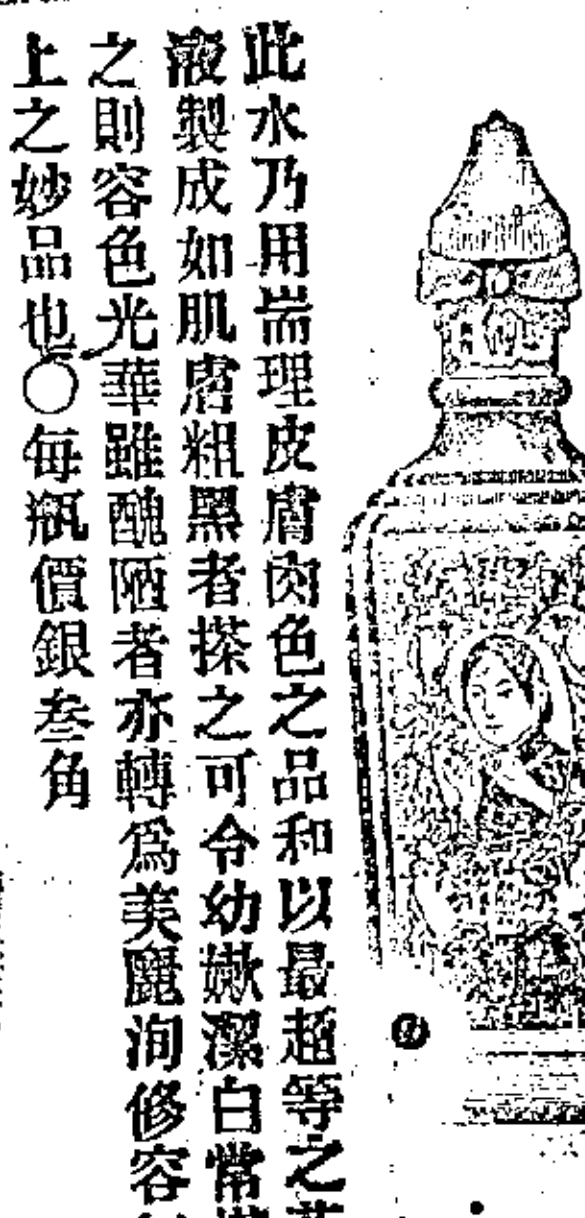 此水乃用耑理皮膚肉色之品和以最超等之
液製成如肌膚粗黑者搽之可令幼嫩潔白常
之則容色光華雖醜陋者亦轉爲美麗洵修容
上之妙品也〇每瓶價銀叁角